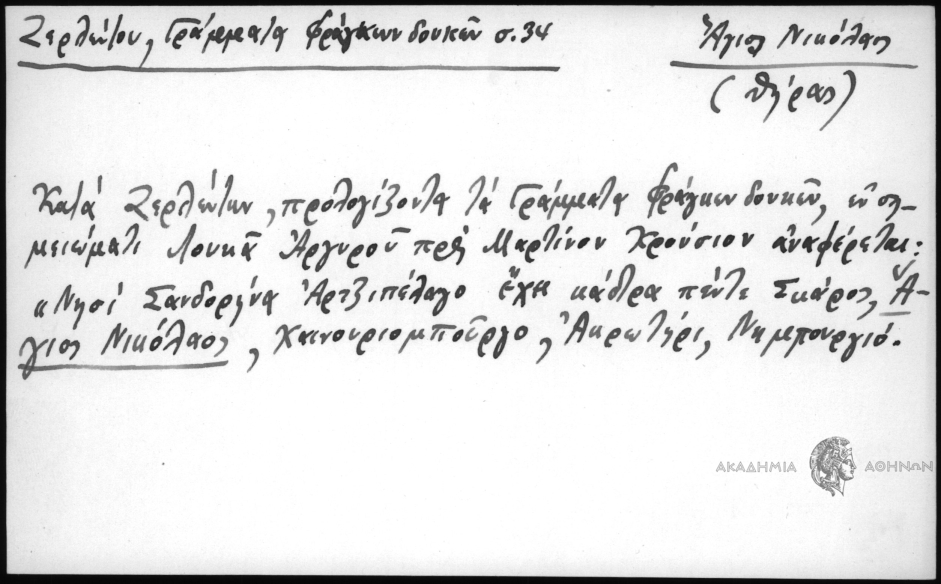 Ζερλέντου, Γράμματα Φράγκων δουκῶν σ.34
Ἅγιος Νικόλαος
(Θήρας)
Κατὰ Ζερλέντην, προλογίζοντα τὰ Γράμματα Φράγκων δουκῶν, ἐν ση-
μειώματι Λουκᾶ Ἀργυροῦ πρὸς Μαρτῖνον Κρούσιον ἀναφέρεται:
« Νησί Σανδορήνα Ἀρτζιπέλαγο ἔχει κάστρα πέντε Σκάρος, Ἅ-
γιος Νικόλαος, Χαινουριομποῦργο, Ἀκρωτήρι, Νημπουργιό.
ΑΚΑΔΗΜΙΑ ΑΘΗΝΩΝ